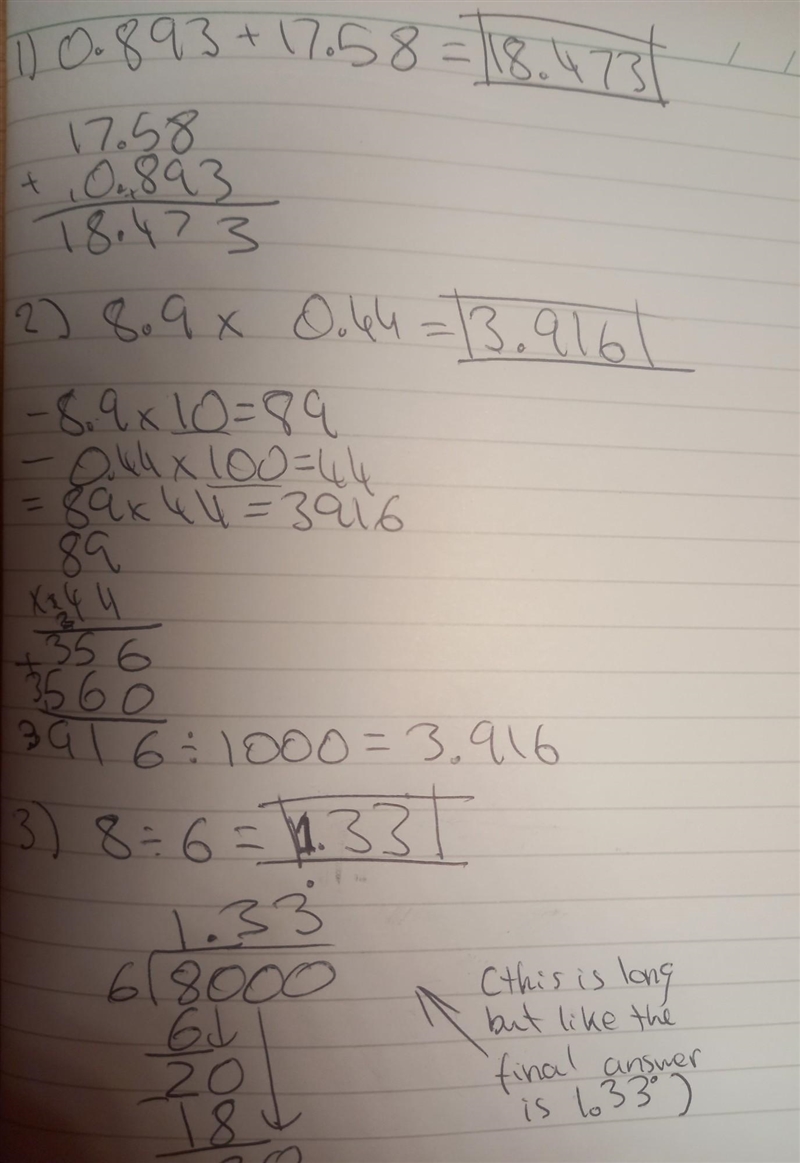 1) 0.893 + 17.58 = 18.473
17.58
+ 0.893
18.473
2) 8.9 x 0.44 = 3.916
- 8.9 x 10 = 89
- 0.44 x 100 = 44
= 89 x 44 = 3916
89
x 44
+ 356
3560
3916 ÷ 1000 = 3.916
3) 8 ÷ 6 = 1.33
1.33̇
6 8000
6↓
20
18
(this is long
but like the
final answer
is 1.33̇)